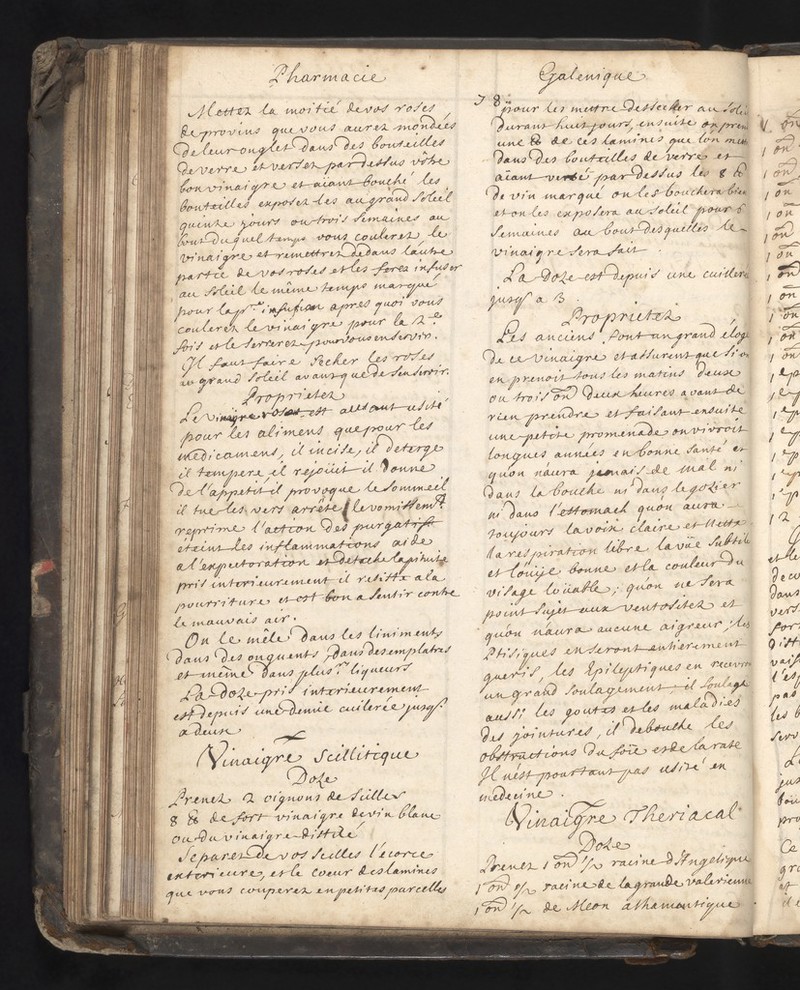 Pharmacie
Mettez la moitié de vos roses
de provins que vous aurez mondées
de leur onglet dans des bouteilles
de verre et versez par dessus vôtre
bon vinaigre et aïant bouché les
bouteilles exposez les au grand soleil
quinze jours ou trois semaines au
bout du quel temps vous coulerez le
vinaigre et remettrez dedans l'autre
partie de vos roses et les ferez infuser
au soleil le même temps marqué
pour la pre. infusion apres quoi vous
coulerez le vinaigre pour la 2e
fois et le serrerez pour vous en servir.
Il faut faire secher les roses
au grand soleil avant que de s'en servir.
Proprietez
Le vinaigre rosat est autant usité
pour les alimens que pour les
medicamens, il incise, il deterge
il tempere il rejoüit il donne
de l'appetit il provoque le sommeil
il tue les vers arrête le vomissemt.
reprime l'action des purgatifs
eteint les inflammations aide
a l'expectoration et detache la pituite
pris interieurement il resiste a la
pourriture et est bon a sentir contre
le mauvais air.
On le mêle dans les liniments
dans des onguents, dans des emplatres
et même dans plusrs. liqueurs
La Doze pris interieurement
est depuis une demie cuilerée jusq.
a deux
Vinaigre Scillitique
Doze
Prenez 2 oignons de scilles
8 ℔ de fort vinaigre de vin blanc
ou du vinaigre distilé
Separez de vos scilles l'écorce
exterieure, et le coeur des lamines
que vous couperez en petites parcelles
Galenique
78
pour les mettre dessecher au soleil
durant huit jours, ensuite on pren
une ℔ de ces lamines que l'on met
dans des bouteilles de verre et
aïant versé par dessus les 8 ℔
de vin marqué on les bouchera bien
et on les exposera au soleil pour 6
semaines au bout desquelles le
vinaigre sera fait
La Doze est depuis une cuillere
jusq' a 3.
Proprietez
Les anciens font un grand élog
de ce vinaigre et assurent que si on
en prenoit tous les matins deux
ou trois on deux heures avant de
rien prendre et faisant ensuite
une petite promenade on vivroit
longues années en bonne santé et
qu'on n'aura jamais de mal ni
dans la bouche ni dans le gozier
ni dans l'estomach quon aura
toujours la voix claire et nette
la respiration libre la vüe subtile
et l'oüije bonne et la couleur du
visage loüable; qu'on ne sera
point sujet aux ventositez et
qu'on n'aura aucune aigreur; les
Ptisiques en seront entierement
gueris, les Epileptiques en recevro
un grand soulagement il soulage
aussi les goutes et les maladies
des jointures, il debouche les
obstructions du foïe et de la rate
Il n'est pourtant pas usité en
medecine.
Vinaigre Theriacal
Doze
Prenez 1 on 1/2 racine d'Angelique
1 on 1/2 racine de la grande valerienne
1 on 1/2 de Meon athamantique